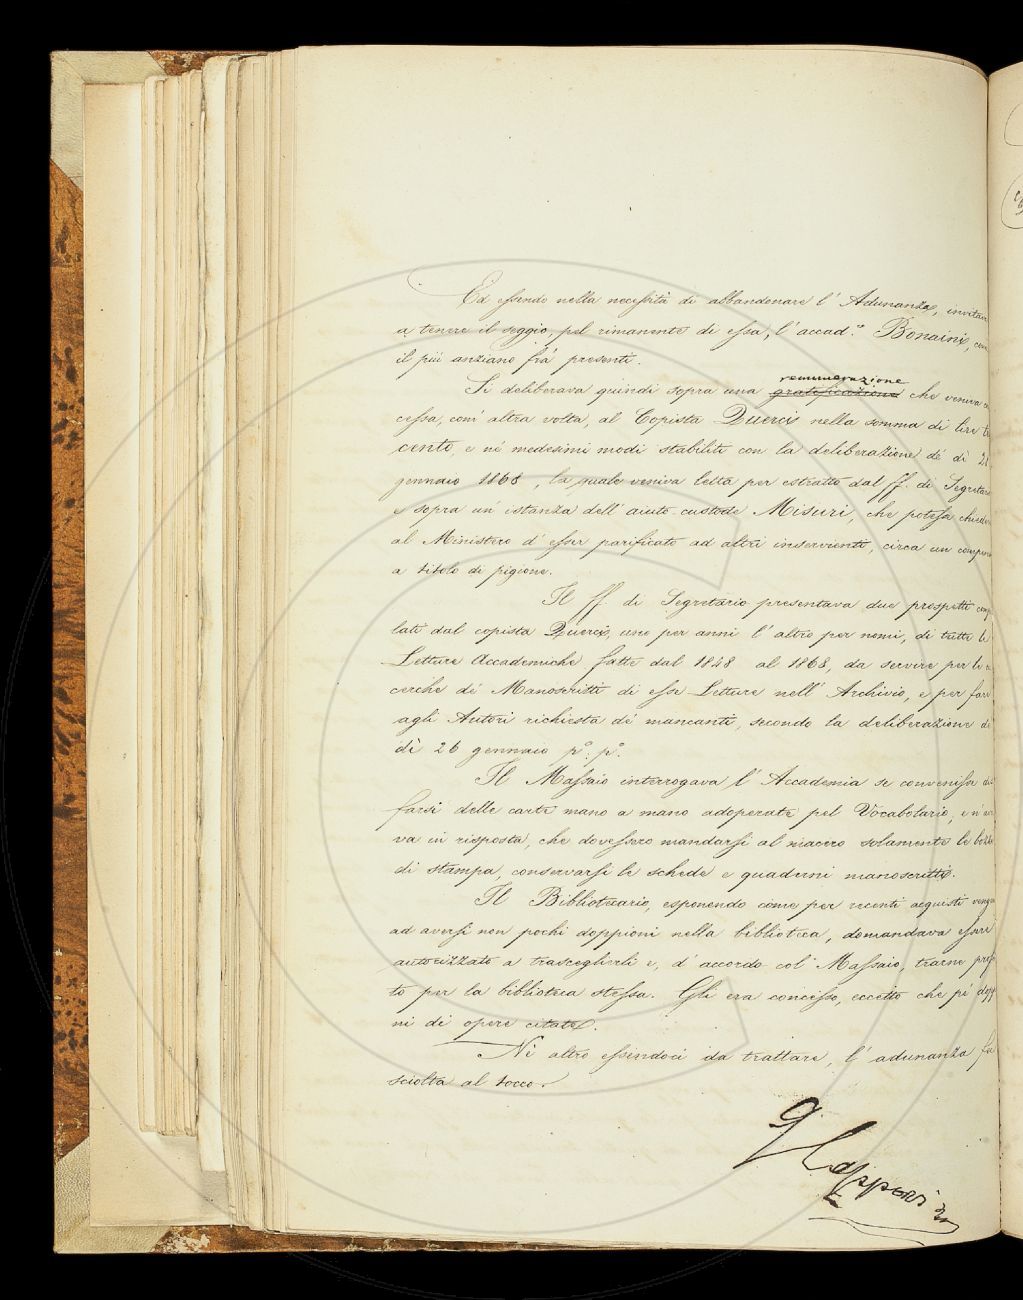 Ed essendo nella necessità di abbandonare l' Adunanza, invitava
a tenere il seggio, pel rimanente di essa, l' accad.º Bonaini, come
il più anziano frà presenti.
remunerazione
Si deliberava quindi sopra una gratificazione che veniva
cessa, com' altra volta, al Copista Querci nella somma di lire
cento, e né medesimi modi stabiliti con la deliberazione dé dì 21
gennaio 1868, la quale veniva letta per estratto dal ff. di Segretario
e sopra un' istanza dell' aiuto-custode Misuri, che potesse chieder
al Ministero d' esser parificato ad altri inservienti, circa un compenso
a titolo di pigione.
Il ff. di Segretario presentava due prospetti comp
lati dal copista Querci, uno per anni l' altro per nomi, di tutte le
Letture Accademiche fatte dal 1848 al 1868, da servire per le
cerche dé Manoscritti di esse Letture nell' Archivio, e per fare
agli Autori richiesta dé mancanti, secondo la deliberazione de
dì 26 gennaio pº. pº.
Il Massaio interrogava l' Accademia se convenisse
farsi delle carte mano a mano adoperate pel Vocabolario, e n' a
va in risposta, che dovessero mandarsi al macero solamente le bozze
di stampa, conservarsi le schede e quaderni manoscritti.
Il Bibliotecario, esponendo come per recenti acquisti venga
ad aversi non pochi doppioni nella biblioteca, domandava esser
autorizzato a trasceglierli e, d' accordo col Massaio, trarne prof
to per la biblioteca stessa. Gli era concesso, eccetto che pé dopp
ni di opere citate.
Nè altro essendoci da trattare, l' adunanza fu
sciolta al tocco.
G Capponi